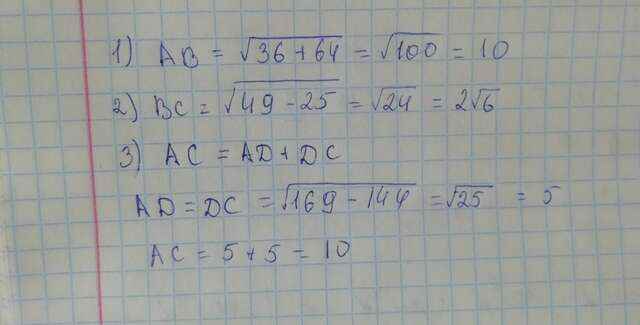 1) AB = √36+64 = √100 = 10
2) BC = √49-25 = √24 = 2√6
3) AC = AD + DC
AD = DC = √169-144 = √25 = 5
AC = 5+5 = 10